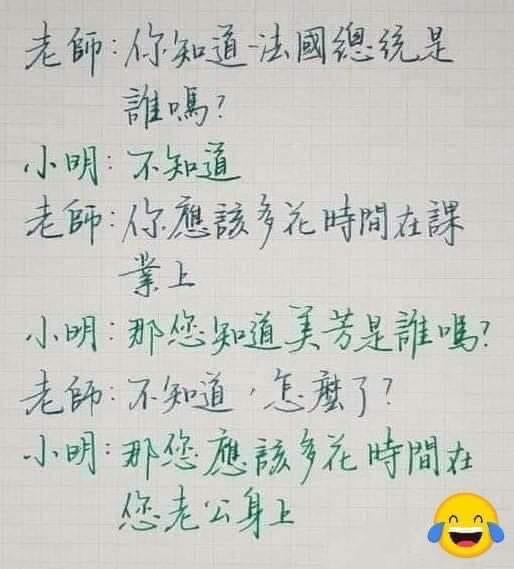 老師:你知道法國總統是
誰嗎?
小明:不知道
老師:你應該多花時間在課
業上
小明:那您知道美芳是誰嗎?
老師:不知道,怎麼了?
小明:那您應該多花時間在
您老公身上